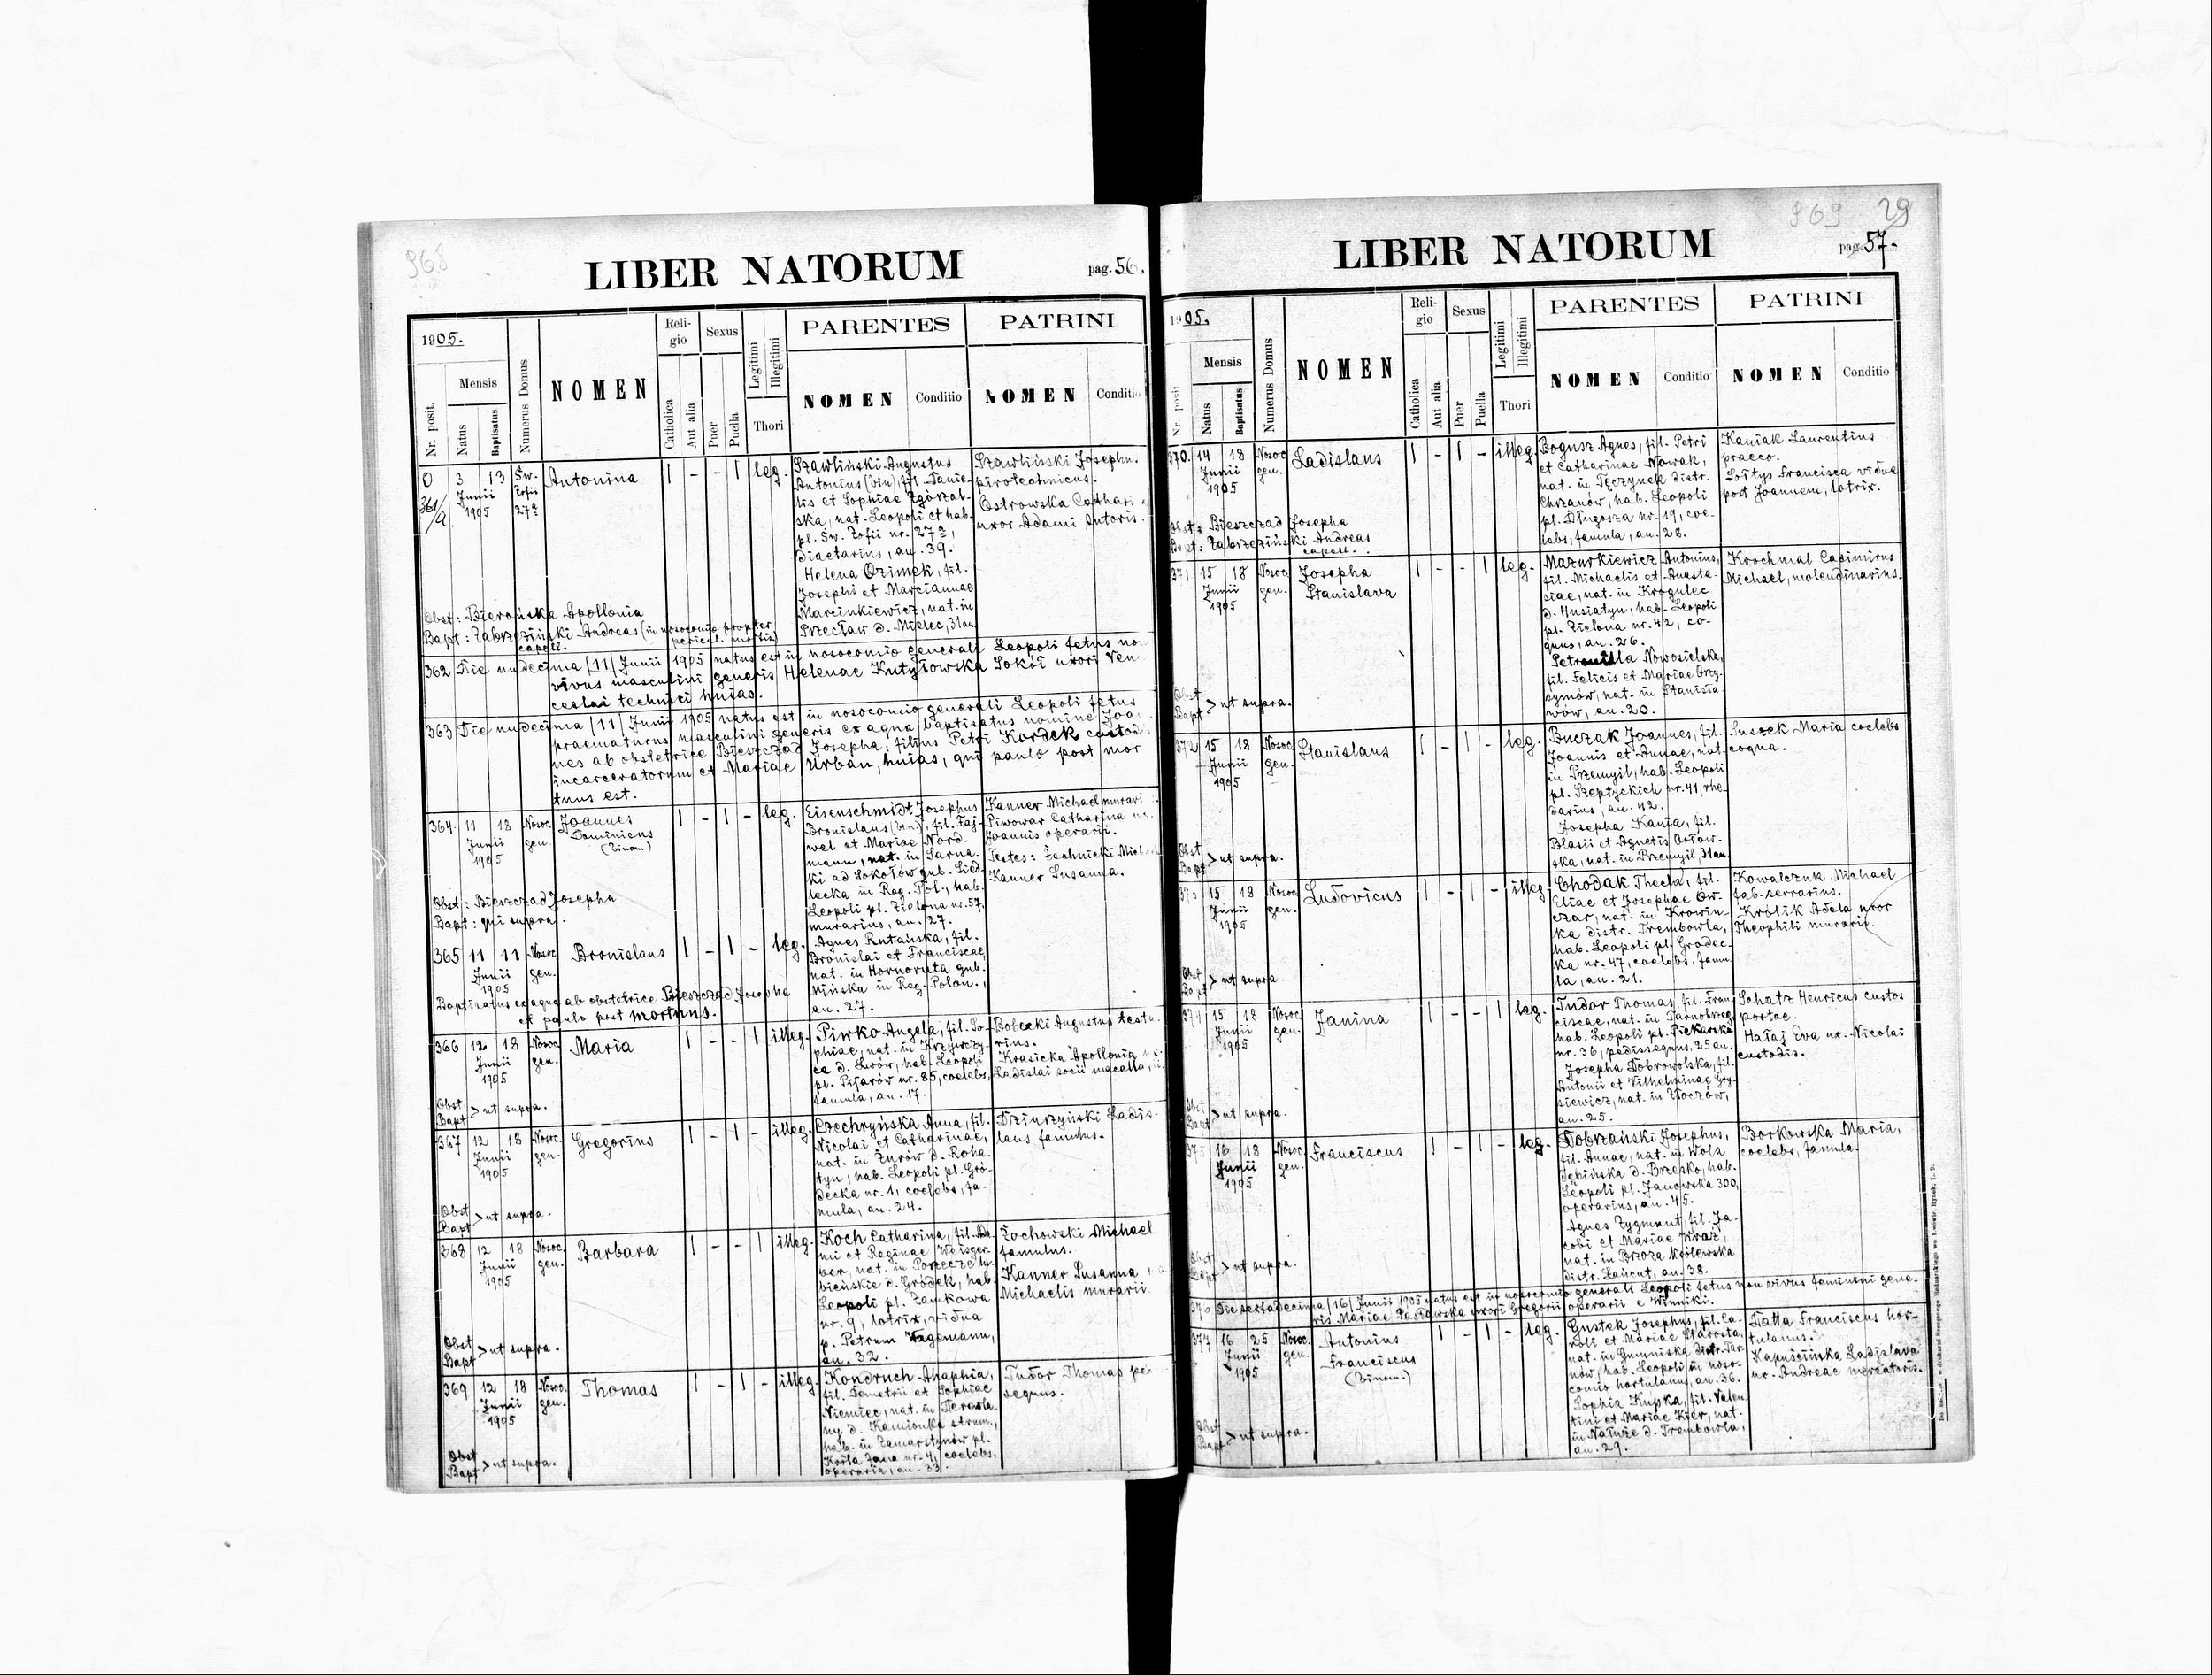 968
LIBER NATORUM
pag. 56.
1905.
Nr. posit.
Mensis
Natus
Baptisatus
Numerus Domus
NOMEN
Religio
Catholica
Aut alia
Sexus
Puer
Puella
Legitimi
Illegitimi
Thori
PARENTES
NOMEN
Conditio
PATRINI
NOMEN
Conditio
0
361/a
3 13
Junii
1905
Św.
Zofii
27a
Antonina
1 - - 1 leg.
Szawliński Augustus
Antonius (bin), fil. Danie-
lis et Sophiae Zgórzal-
ska, nat. Leopoli et hab.
pl. Św. Zofii nr. 27a,
diaetarius, an. 39.
Helena Ozimek, fil.
Josephi et Marciannae
Marcinkiewicz, nat. in
Przecław d. Mielec, 31 an.
Szawliński Josephu.
pirotechnicus.
Ostrowska Cathari
uxor Adami sutoris.
Obst: Bierońska Apollonia
Bapt: Zabrzeziński Andreas (in nosocomio propter
capell. pericul. mortis)
362 Die undecima /11/ Junii 1905 natus est in nosocomio generali Leopoli fetus no
vivus masculini generis Helenae Kutyłowska Sokół uxori Ven
ceslai technici huias.
363 Die undecima /11/ Junii 1905 natus est in nosocomio generali Leopoli fetus
praematurus masculini generis ex aqua baptisatus nomine Joa
nes ab obstetrice Bieszczad Josepha, filius Petri Kordek custod
incarceratorum et Mariae Urban, huias, qui paulo post mor
tuus est.
364. 11 18
Junii
1905
Nosoc.
gen.
Joannes
Dominicus
(binom)
1 - 1 - leg.
Eisenschmidt Josephus
Bronislaus (bin.), fil. Faj-
wel et Mariae Nord-
mann, nat. in Sarna-
ki ad Sokołów gub. Sied-
lecka in Reg. Pol., hab.
Leopoli pl. Zielona nr. 57,
murarius, an. 27.
Agnes Rutańska, fil.
Bronislai et Franciscae,
nat. in Hornoruta gub.
Mińska in Reg. Polon.,
an. 27.
Kanner Michael murari
Piwowar Catharina
Joannis operarii.
Testes: Żechnicki Mich
Kanner Susanna.
Obst: Bieszczad Josepha
Bapt: qui supra.
365 11 11
Junii
1905
Nosoc.
gen.
Bronislaus
1 - 1 - leg.
Baptisatus ex aqua ab obstetrice Bieszczad Josepha
et paulo post mortuus.
366 12 18
Junii
1905
Nosoc.
gen.
Maria
1 - - 1 illeg.
Piwko Angela, fil. So-
phiae, nat. in Krzywczy-
ce d. Lwów, hab. Leopoli
pl. Pijarów nr. 85, coelebs,
famula, an. 17.
Bobecki Augustus
rius.
Krasicka Apollonia
Ladislai socii macella
Obst
Bapt > ut supra.
367 12 18
Junii
1905
Nosoc.
gen.
Gregorius
1 - 1 - illeg.
Czechryńska Anna, fil.
Nicolai et Catharinae,
nat. in Żurów d. Roha-
tyn, hab. Leopoli pl. Gró-
decka nr. 1, coelebs, fa-
mula, an. 24.
Dziurzyński Ladis-
laus famulus.
Obst
Bapt > ut supra.
368 12 18
Junii
1905
Nosoc.
gen.
Barbara
1 - - 1 illeg.
Koch Catharina, fil. Da-
nii et Reginae Weisger-
ber, nat. in Porzecze lu-
bieńskie d. Gródek, hab.
Leopoli pl. Zamkowa
nr. 9, lotrix, vidua
p. Petrum Wagemann,
an. 32.
Żochowski Michael
famulus.
Kanner Susanna
Michaelis murarii
Obst
Bapt > ut supra.
369 12 18
Junii
1905
Nosoc.
gen.
Thomas
1 - 1 - illeg.
Kondruch Ahaphia,
fil. Demetrii et Sophiae
Niemiec, nat. in
ny d. Kamionka strum.,
hab. in Zamarstynów pl.
Króla Jana nr. 4, coelebs,
operaria, an. 33.
Tudor Thomas pe
sequus.
Obst
Bapt > ut supra.
969 29
LIBER NATORUM
pag. 57.
1905.
Nr. posit
Mensis
Natus
Baptisatus
Numerus Domus
NOMEN
Religio
Catholica
Aut alia
Sexus
Puer
Puella
Legitimi
Illegitimi
Thori
PARENTES
NOMEN
Conditio
PATRINI
NOMEN
Conditio
370. 14 18
Junii
1905
Nosoc
gen.
Ladislaus
1 - 1 - illeg.
Bogusz Agnes, fil. Petri
et Catharinae Nowak,
nat. in Tęczynek distr.
Chrzanów, hab. Leopoli
pl. Długosza nr. 19, coe-
lebs, famula, an. 28.
Kaniak Laurentius
praeco.
Loitys Francisca vidua
post Joannem, lotrix.
Obst: Bieszczad Josepha
Bapt: Zabrzeziński Andreas
capell.
371 15 18
Junii
1905
Nosoc.
gen.
Josepha
Stanislava
1 - - 1 leg.
Mazurkiewicz Antonius,
fil. Michaelis et Anasta-
siae, nat. in Krogulec
d. Husiatyn, hab. Leopoli
pl. Zielona nr. 42, co-
quus, an. 26.
Petronilla Nowosielska,
fil. Felicis et Mariae Grzy-
symów, nat. in Stanisła-
wów, an. 20.
Krochmal Casimirus
Michael, molendinarius.
Obst
Bapt > ut supra.
372 15 18
Junii
1905
Nosoc.
gen.
Stanislaus
1 - 1 - leg.
Buczak Joannes, fil.
Joannis et Annae, nat.
in Przemyśl, hab. Leopoli
pl. Szeptyckich nr. 41, rhe-
darius, an. 42.
Josepha Kania, fil.
Blasii et Agnetis Orłow-
ska, nat. in Przemyśl, 31 an.
Suszek Maria coelebs
coqua.
Obst
Bapt > ut supra.
373 15 18
Junii
1905
Nosoc.
gen.
Ludovicus
1 - 1 - illeg.
Chodak Thecla, fil.
Eliae et Josephae Ow-
czar, nat. in Krowin-
ka distr. Trembowla,
hab. Leopoli pl. Grodec-
ka nr. 47, coelebs, famu-
la, an. 21.
Kowalczuk Michael
fab. ferrarius.
Królik Adela uxor
Theophili murarii.
Obst
Bapt > ut supra.
374 15 18
Junii
1905
Nosoc.
gen.
Janina
1 - - 1 leg.
Tudor Thomas, fil. Fran-
ciscae, nat. in Tarnobrzeg,
hab. Leopoli pl. Piekarska
nr. 36, pedissequus, 25 an.
Josepha Dobrowolska, fil.
Antonii et Vilhelminae Gry-
siewicz, nat. in Złoczów,
an. 25.
Schatz Henricus custos
portae.
Hałaj Eva ux. Nicolai
custodis.
Obst
Bapt > ut supra.
375 16 18
Junii
1905
Nosoc.
gen.
Franciscus
1 - 1 - leg.
Dobrzański Josephus,
fil. Annae, nat. in Wola
Dębińska d. Brzesko, hab.
Leopoli pl. Janowska 300,
operarius, an. 45.
Agnes Zygmunt fil. Ja-
cobi et Mariae Wraż,
nat. in Brzoza Królewska
distr. Łańcut, an. 38.
Borkowska Maria,
coelebs, famula.
Obst
Bapt > ut supra.
376 Die sexta decima /16/ Junii 1905 natus est in nosocomio generali Leopoli fetus non vivus feminini gene-
ris Mariae uxori Gregorii operarii e Winniki.
377 16 25
Junii
1905
Nosoc.
gen.
Antonius
Franciscus
(binom.)
1 - 1 - leg.
Gustek Josephus, fil. Ca-
roli et Mariae Starosta,
nat. in Gumniska distr. Tar-
nów, hab. Leopoli in noso-
comio hortulanus, an. 36.
Sophia Kupka, fil. Valen-
tini et Mariae Kier, nat.
in Nałuże d. Trembowla,
an. 29.
Tatta Franciscus hor-
tulanus.
Kapuścińska Ladislava
ux. Andreae mercatoris.
Obst
Bapt > ut supra.